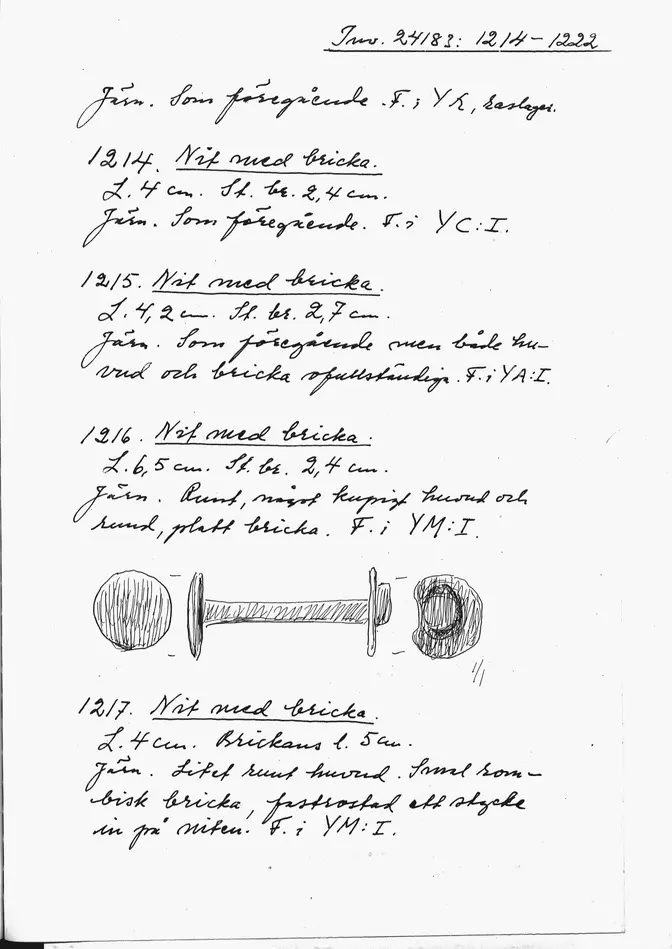 Inv. 24183: 1214–1222
Järn. Som föregående. F. i YK, raslager.
1214. Nit med bricka.
L. 4 cm. St. br. 2,4 cm.
Järn. Som föregående. F. i YC:I.
1215. Nit med bricka.
L. 4,2 cm. St. br. 2,7 cm.
Järn. Som föregående men både hu-
vud och bricka ofullständiga. F. i YA:I.
1216. Nit med bricka.
L. 6,5 cm. St. br. 2,4 cm.
Järn. Runt, något kupigt huvud och
rund, platt bricka. F. i YM:I.
1/1
1217. Nit med bricka.
L. 4 cm. Brickans l. 5 cm.
Järn. Litet runt huvud. Smal rom-
bisk bricka, fastrostad ett stycke
in på niten. F. i YM:I.